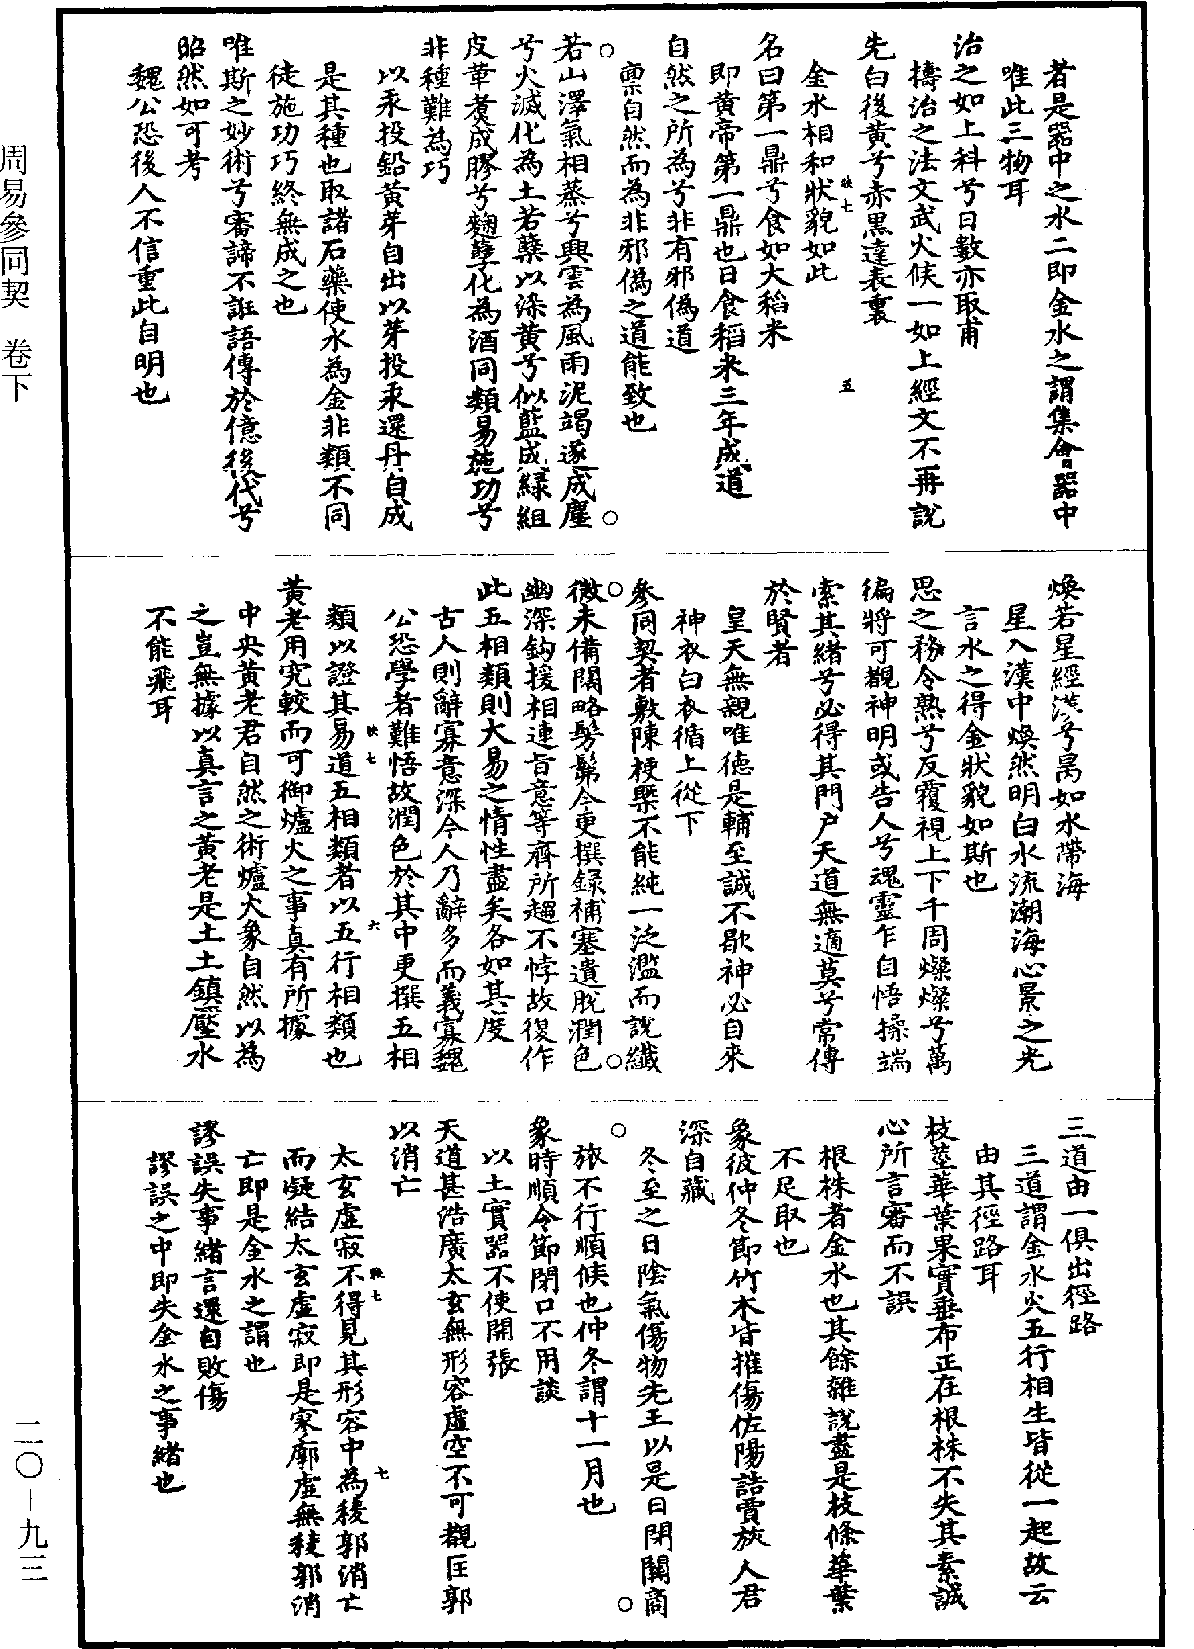 者是器中之水二即金水之謂集會器中
唯此三物耳
治之如上科兮日數亦取甫
擣治之法文武火候一如上經文不再說
先白後黃兮赤黑達表裏
金水相和狀貌如此
名曰第一鼎兮食如大稻米
即黃帝第一鼎也日食稻米三年成道
自然之所為兮非有邪偽道
稟自然而為非邪偽之道能致也
○若山澤氣相蒸兮興雲為風雨泥竭遂成塵○
兮火滅化為土若蘗以染黃兮似藍成綠組
皮革煮成膠兮麴糱化為酒同類易施功兮
非種難為巧
以汞投鉛黃芽自出以芽投汞還丹自成
是其種也取諸石藥使水為金非類不同
徒施功巧終無成之也
唯斯之妙術兮審諦不誑語傳於億後代兮
昭然如可考
魏公恐後人不信重此自明也
煥若星經漢兮昺如水帶海
星入漢中煥然明白水流潮海心景之光
言水之得金狀貌如斯也
思之務令熟兮反覆視上下千周燦燦兮萬
徧將可覩神明或告人兮魂靈乍自悟操端
索其緒兮必得其門戶天道無適莫兮常傳
於賢者
皇天無親唯德是輔至誠不歇神必自來
神衣白衣循上從下
○參同契者敷陳梗槩不能純一泛濫而說纖○
微未備闊略髣髴今更撰錄補塞遺脫潤色
幽深鈎援相連旨意等齊所趨不悖故復作
此五相類則大易之情性盡矣各如其度
古人則辭寡意深今人乃辭多而義寡魏
公恐學者難悟故潤色於其中更撰五相
類以證其易道五相類者以五行相類也
黃老用究較而可御爐火之事真有所據
中央黃老君自然之術爐火象自然以為
之豈無據以真言之黃老是土土鎮壓水
不能飛耳
三道由一俱出徑路
三道謂金水火五行相生皆從一起故云
由其徑路耳
枝莖華葉果實垂布正在根株不失其素誠
心所言審而不誤
根株者金水也其餘雜說盡是枝條華葉
不足取也
象彼仲冬節竹木皆摧傷佐陽詰賈旅人君
深自藏
○冬至之日陰氣傷物先王以是日閉關商○
旅不行順候也仲冬謂十一月也
象時順令節閉口不用談
以土實器不使開張
天道甚浩廣太玄無形容虛空不可覩匡郭
以消亡
太玄虛寂不得見其形容中為稜郭消亡
而凝結太玄虛寂即是寥廓虛無稜郭消
亡即是金水之謂也
謬誤失事緒言還自敗傷
謬誤之中即失金水之事緒也
周易參同契　卷下
二〇－九三